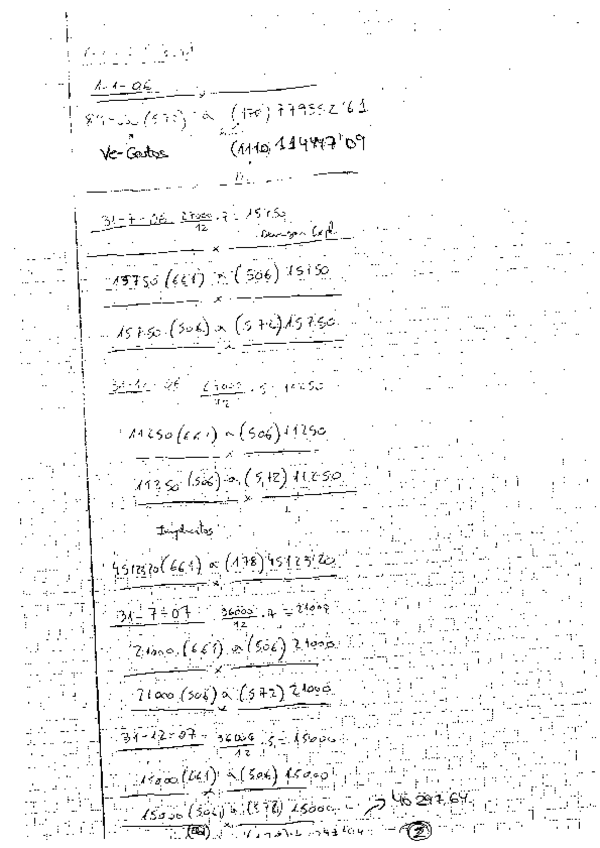 1-1-06
(572) a (178) 779552'61
Ve-Gastos (1110) 114447'09
31-7-06 27000/12 . 7 = 15750
15750 (661) a (506) 15750
15750 (506) a (572) 15750
31-12-06 27000/12 . 5 = 11250
11250 (661) a (506) 11250
11250 (506) a (572) 11250
Implicitos
45123'20 (661) a (178) 45123'20
31-7-07 36000/12 . 7 = 21000
21000 (661) a (506) 21000
21000 (506) a (572) 21000
31-12-07 - 36000/12 . 5 = 15000
15000 (661) a (506) 15000
15000 (506) a (572) 15000 → 46297,64
2